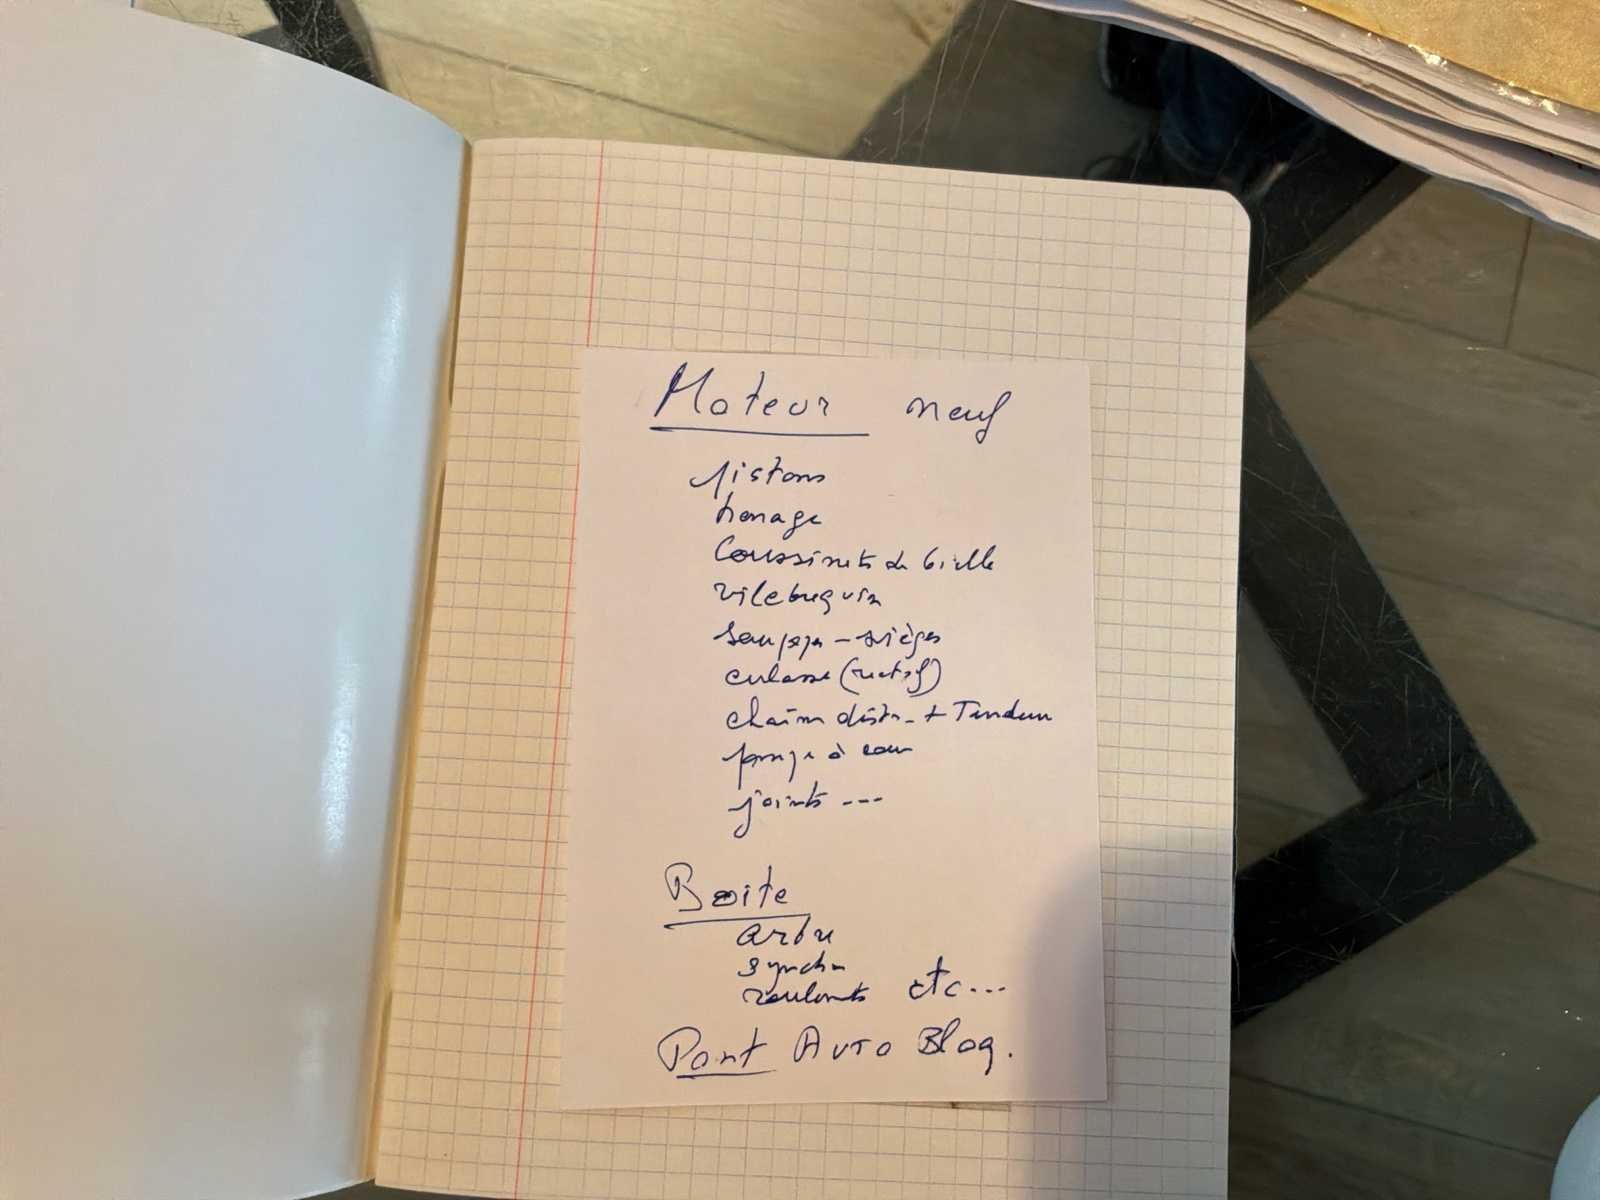 Moteur neuf
pistons
honage
Coussinets de bielle
vilebrequin
soupapes - sièges
culasse (rectif)
chaîne distr. + Tendeur
pompe à eau
joints ---
Boite
arbre
synchro
roulements etc...
Pont Auto Bloq.